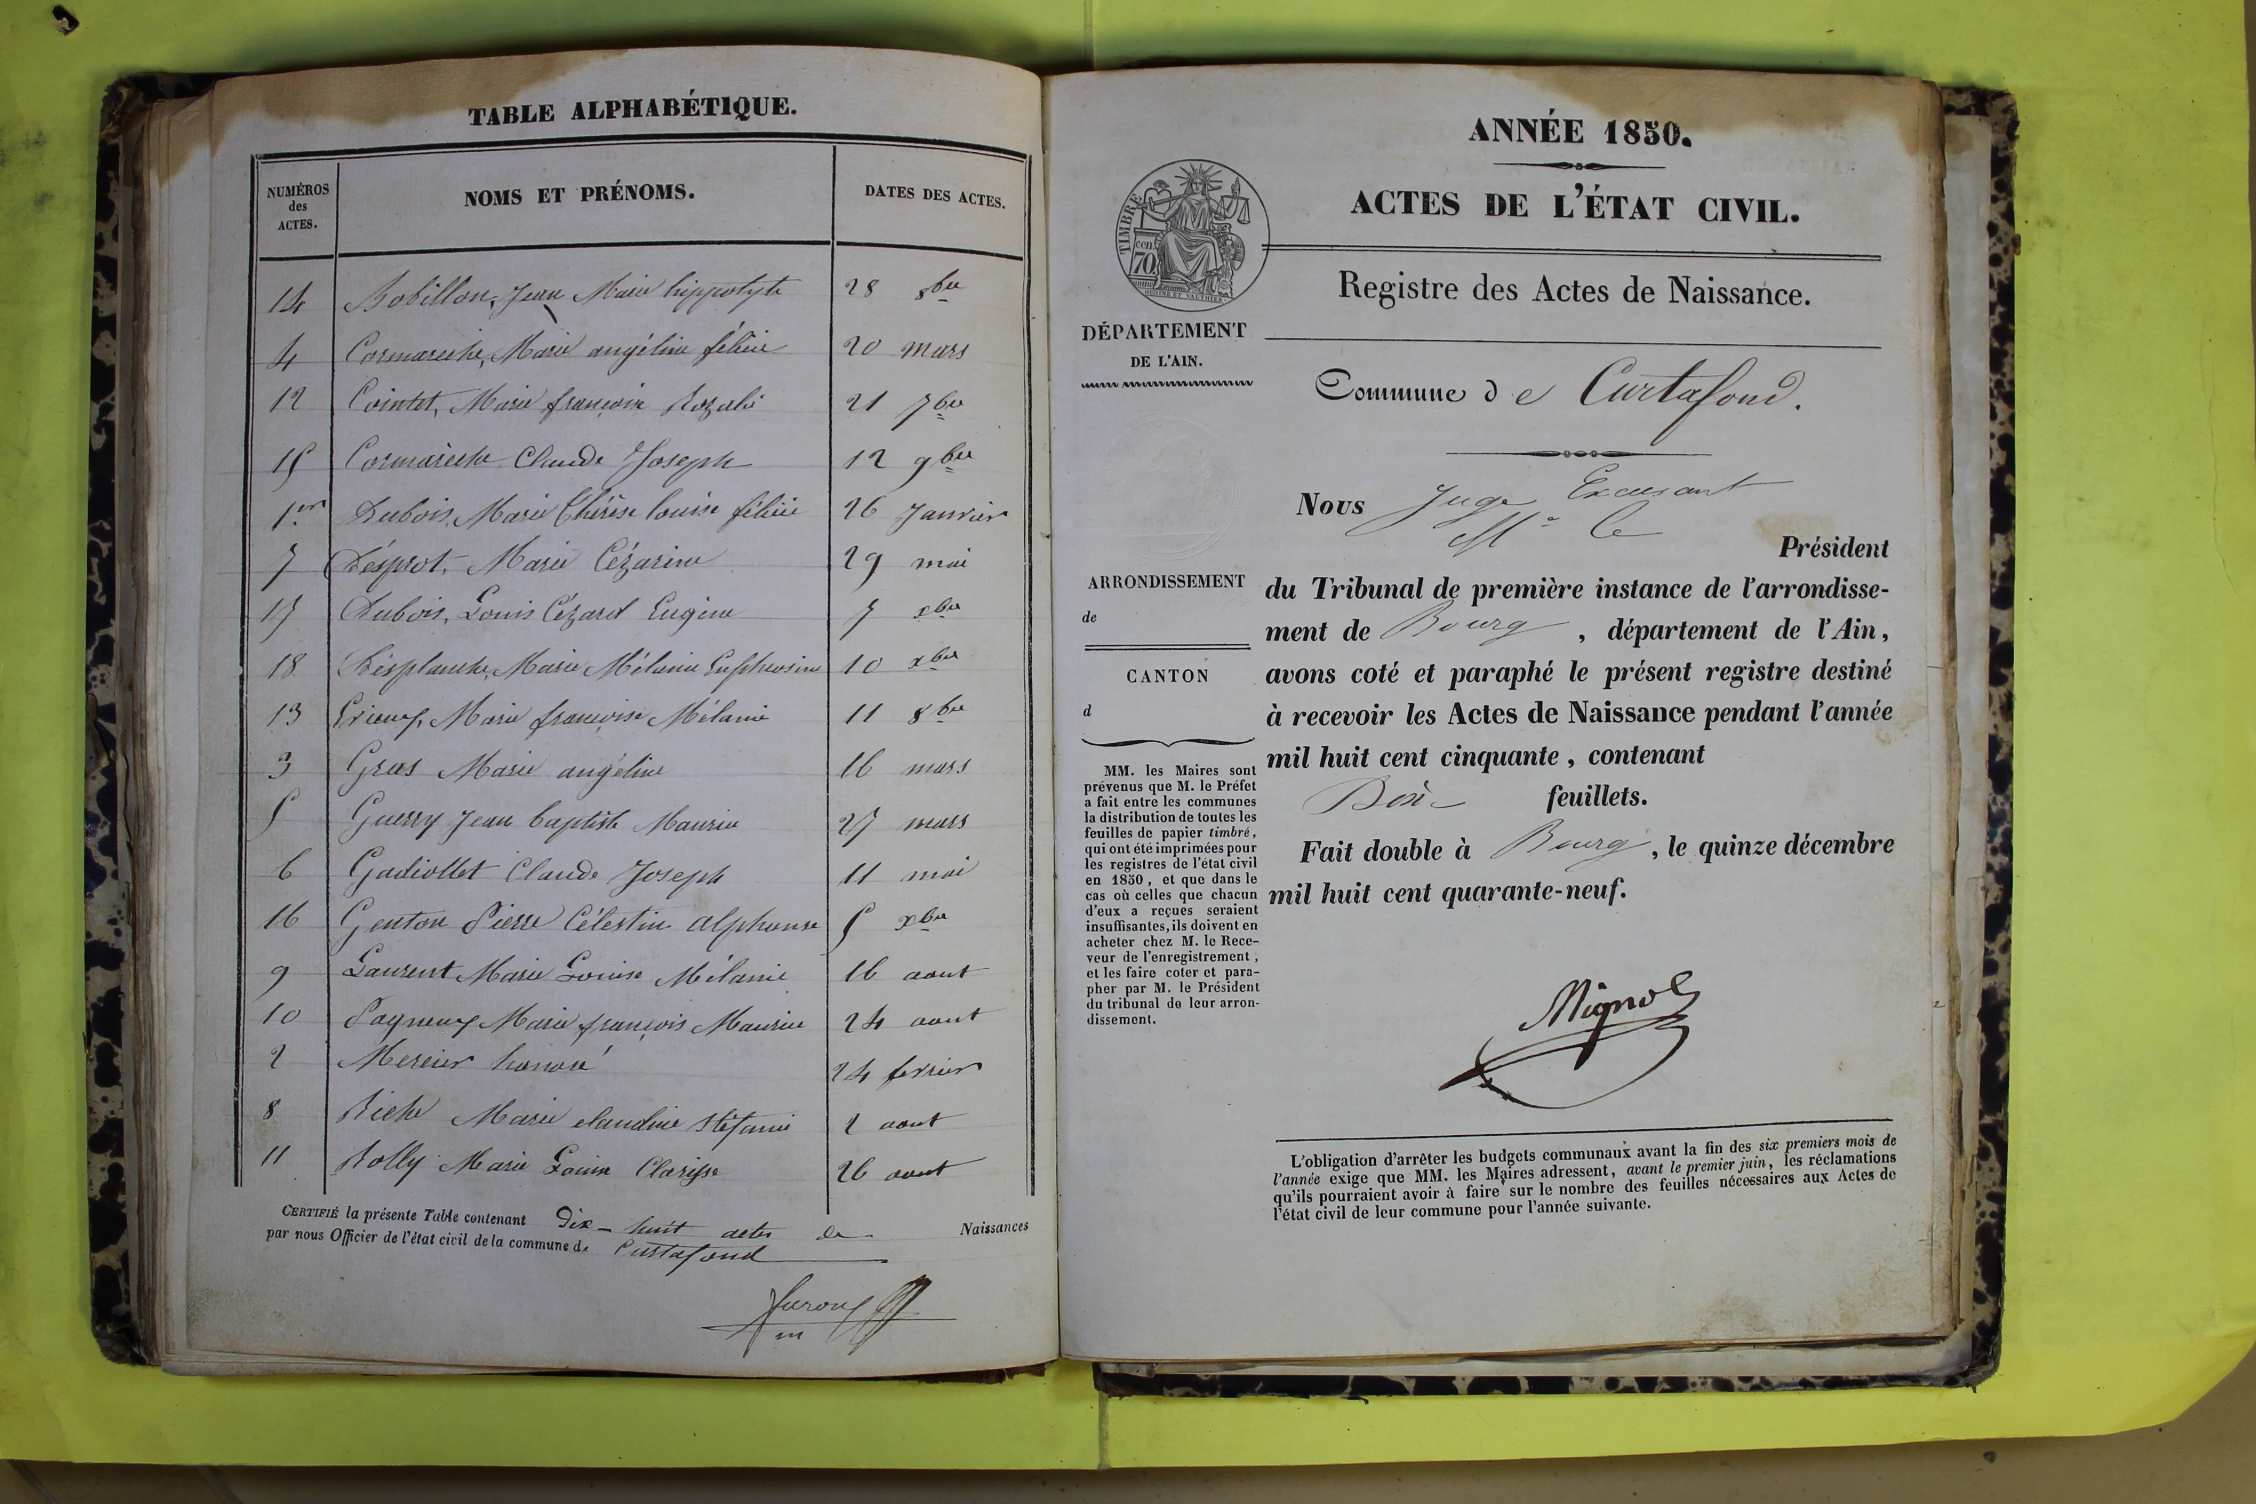 TABLE ALPHABÉTIQUE.
NUMÉROS
des
ACTES.
NOMS ET PRÉNOMS.
DATES DES ACTES.
14 Bobillon, Jean Marie hippolyte 28 8bre
4 Cormareche, Marie angéline félicie 20 mars
12 Cointet, Marie françoise Rozalie 21 7bre
15 Cormareche Claude Joseph 12 9bre
1er Dubois, Marie Thérèse louise félicie 26 Janvier
7 Désprot, Marie Cézarine 29 mai
17 Dubois, Louis Cézard Eugène 7 xbre
18 Désplanche, Marie Mélanie Euphrosine 10 xbre
13 Marie françoise Mélanie 11 8bre
3 Gras Marie angéline 16 mars
5 Guerry Jean baptiste Maurice 27 mars
6 Gadiollet Claude Joseph 11 mai
16 Genton Pierre Célestin alphonse 5 xbre
9 Laurent Marie Louise Mélanie 16 aout
10 Marie françois Maurice 24 aout
2 Mercier honoré 24 fevrier
8 Riche Marie claudine Stéfanie 2 aout
11 Rolly Marie Louise Clarisse 26 aout
CERTIFIÉ la présente Table contenant Dix-huit actes de Naissances
par nous Officier de l'état civil de la commune de Curtafond
ANNÉE 1850.
ACTES DE L'ÉTAT CIVIL.
TIMBRE
cen.
70
Registre des Actes de Naissance.
DÉPARTEMENT
DE L'AIN.
Commune de Curtafond.
Nous Juge Excusant
Mr le
Président
du Tribunal de première instance de l'arrondisse-
ment de Bourg, département de l'Ain,
avons coté et paraphé le présent registre destiné
à recevoir les Actes de Naissance pendant l'année
mil huit cent cinquante, contenant
feuillets.
Fait double à Bourg, le quinze décembre
mil huit cent quarante-neuf.
Mignot
ARRONDISSEMENT
de
CANTON
d
MM. les Maires sont
prévenus que M. le Préfet
a fait entre les communes
la distribution de toutes les
feuilles de papier timbré,
qui ont été imprimées pour
les registres de l'état civil
en 1850, et que dans le
cas où celles que chacun
d'eux a reçues seraient
insuffisantes, ils doivent en
acheter chez M. le Rece-
veur de l'enregistrement,
et les faire coter et para-
pher par M. le Président
du tribunal de leur arron-
dissement.
L'obligation d'arrêter les budgets communaux avant la fin des six premiers mois de
l'année exige que MM. les Maires adressent, avant le premier juin, les réclamations
qu'ils pourraient avoir à faire sur le nombre des feuilles nécessaires aux Actes de
l'état civil de leur commune pour l'année suivante.